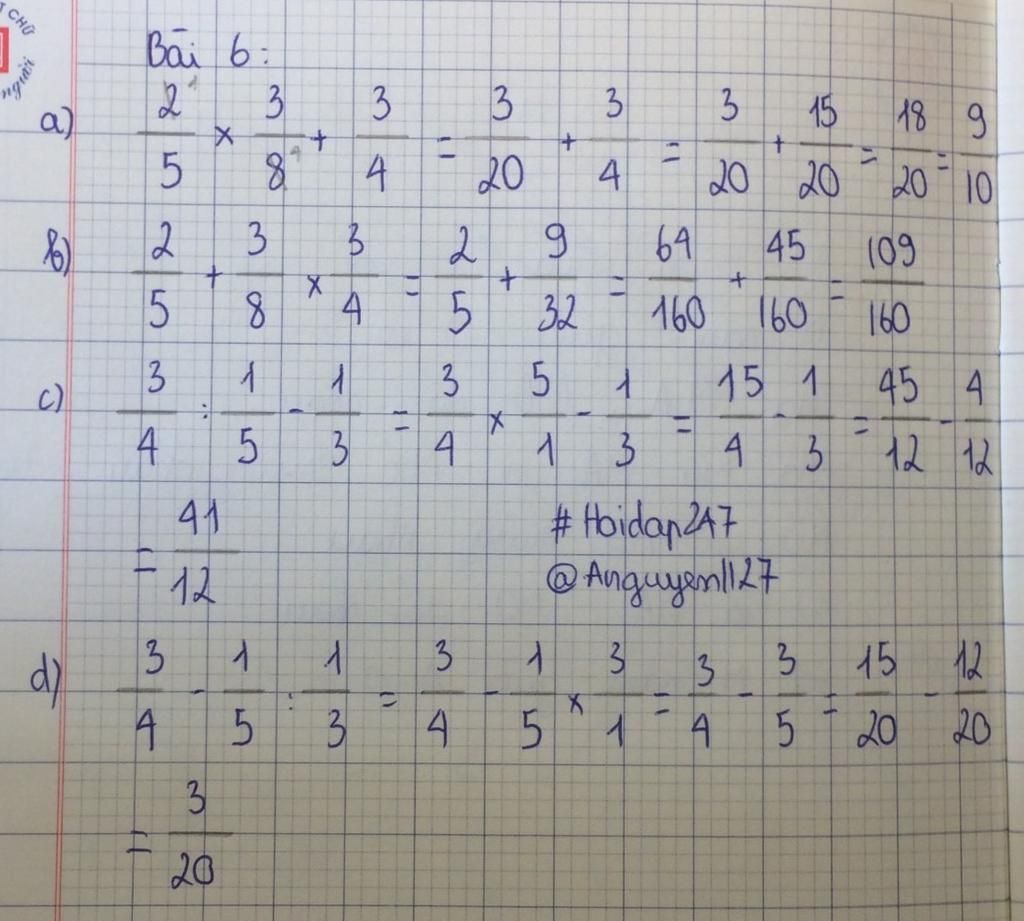 T CHỮ
người
Bài 6:
a) 2/5 × 3/8 + 3/4 = 3/20 + 3/4 = 3/20 + 15/20 = 18/20 = 9/10
b) 2/5 + 3/8 × 3/4 = 2/5 + 9/32 = 64/160 + 45/160 = 109/160
c) 3/4 : 1/5 - 1/3 = 3/4 × 5/1 - 1/3 = 15/4 - 1/3 = 45/12 - 4/12
= 41/12
#Hoidap247
@Anguyen1127
d) 3/4 - 1/5 : 1/3 = 3/4 - 1/5 × 3/1 = 3/4 - 3/5 = 15/20 - 12/20
= 3/20